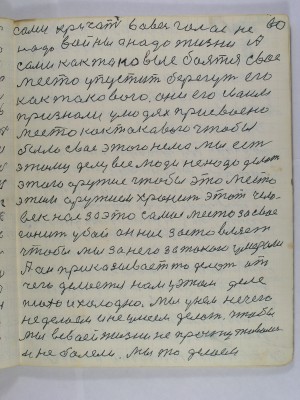 сами кричат вовсе голос не 60
надо войны а надо жизни А
сами как таковые боятся свое
место упустит берегут его
как такового. они его нашли
признали у людях присвоено
место как такового чтобы
было свое этого нема мы ест
этому делу все люди не надо делат
этого оружие чтобы это место
этим оружием хранит этот чело
век нас за это самое место за свое
гонит убой он нас заставляет
чтобы мы за него за такого умирали
А он приказывает то делат от
чего делается нам у этом деле
плохо и холодно. мы у нем нечего
не делаем и не умеем делат. чтобы
мы в своей жизни не простуживалис
и не болели. мы то делаем